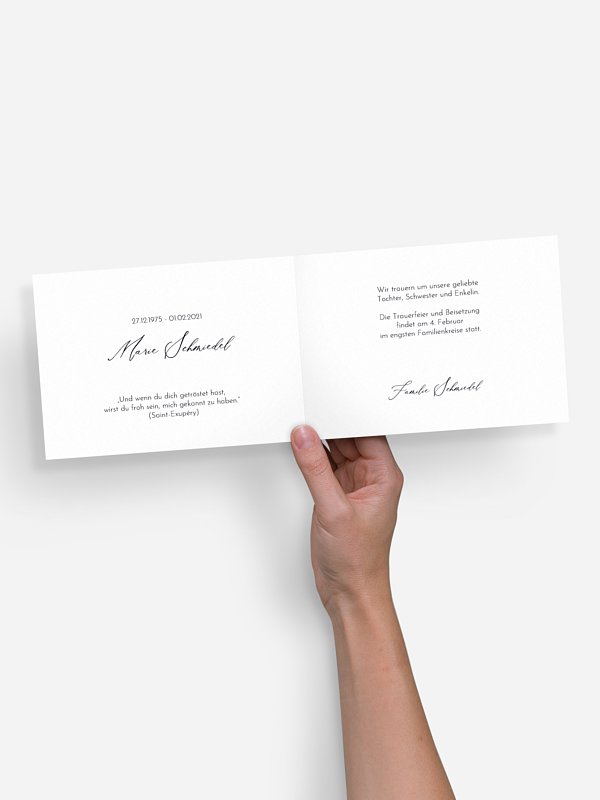 27.12.1975 - 01.02.2021
Marie Schmiedel
„Und wenn du dich getröstet hast,
wirst du froh sein, mich gekonnt zu haben."
(Saint-Exupéry)
Wir trauern um unsere geliebte
Tochter, Schwester und Enkelin.
Die Trauerfeier und Beisetzung
findet am 4. Februar
im engsten Familienkreise statt.
Familie Schmiedel